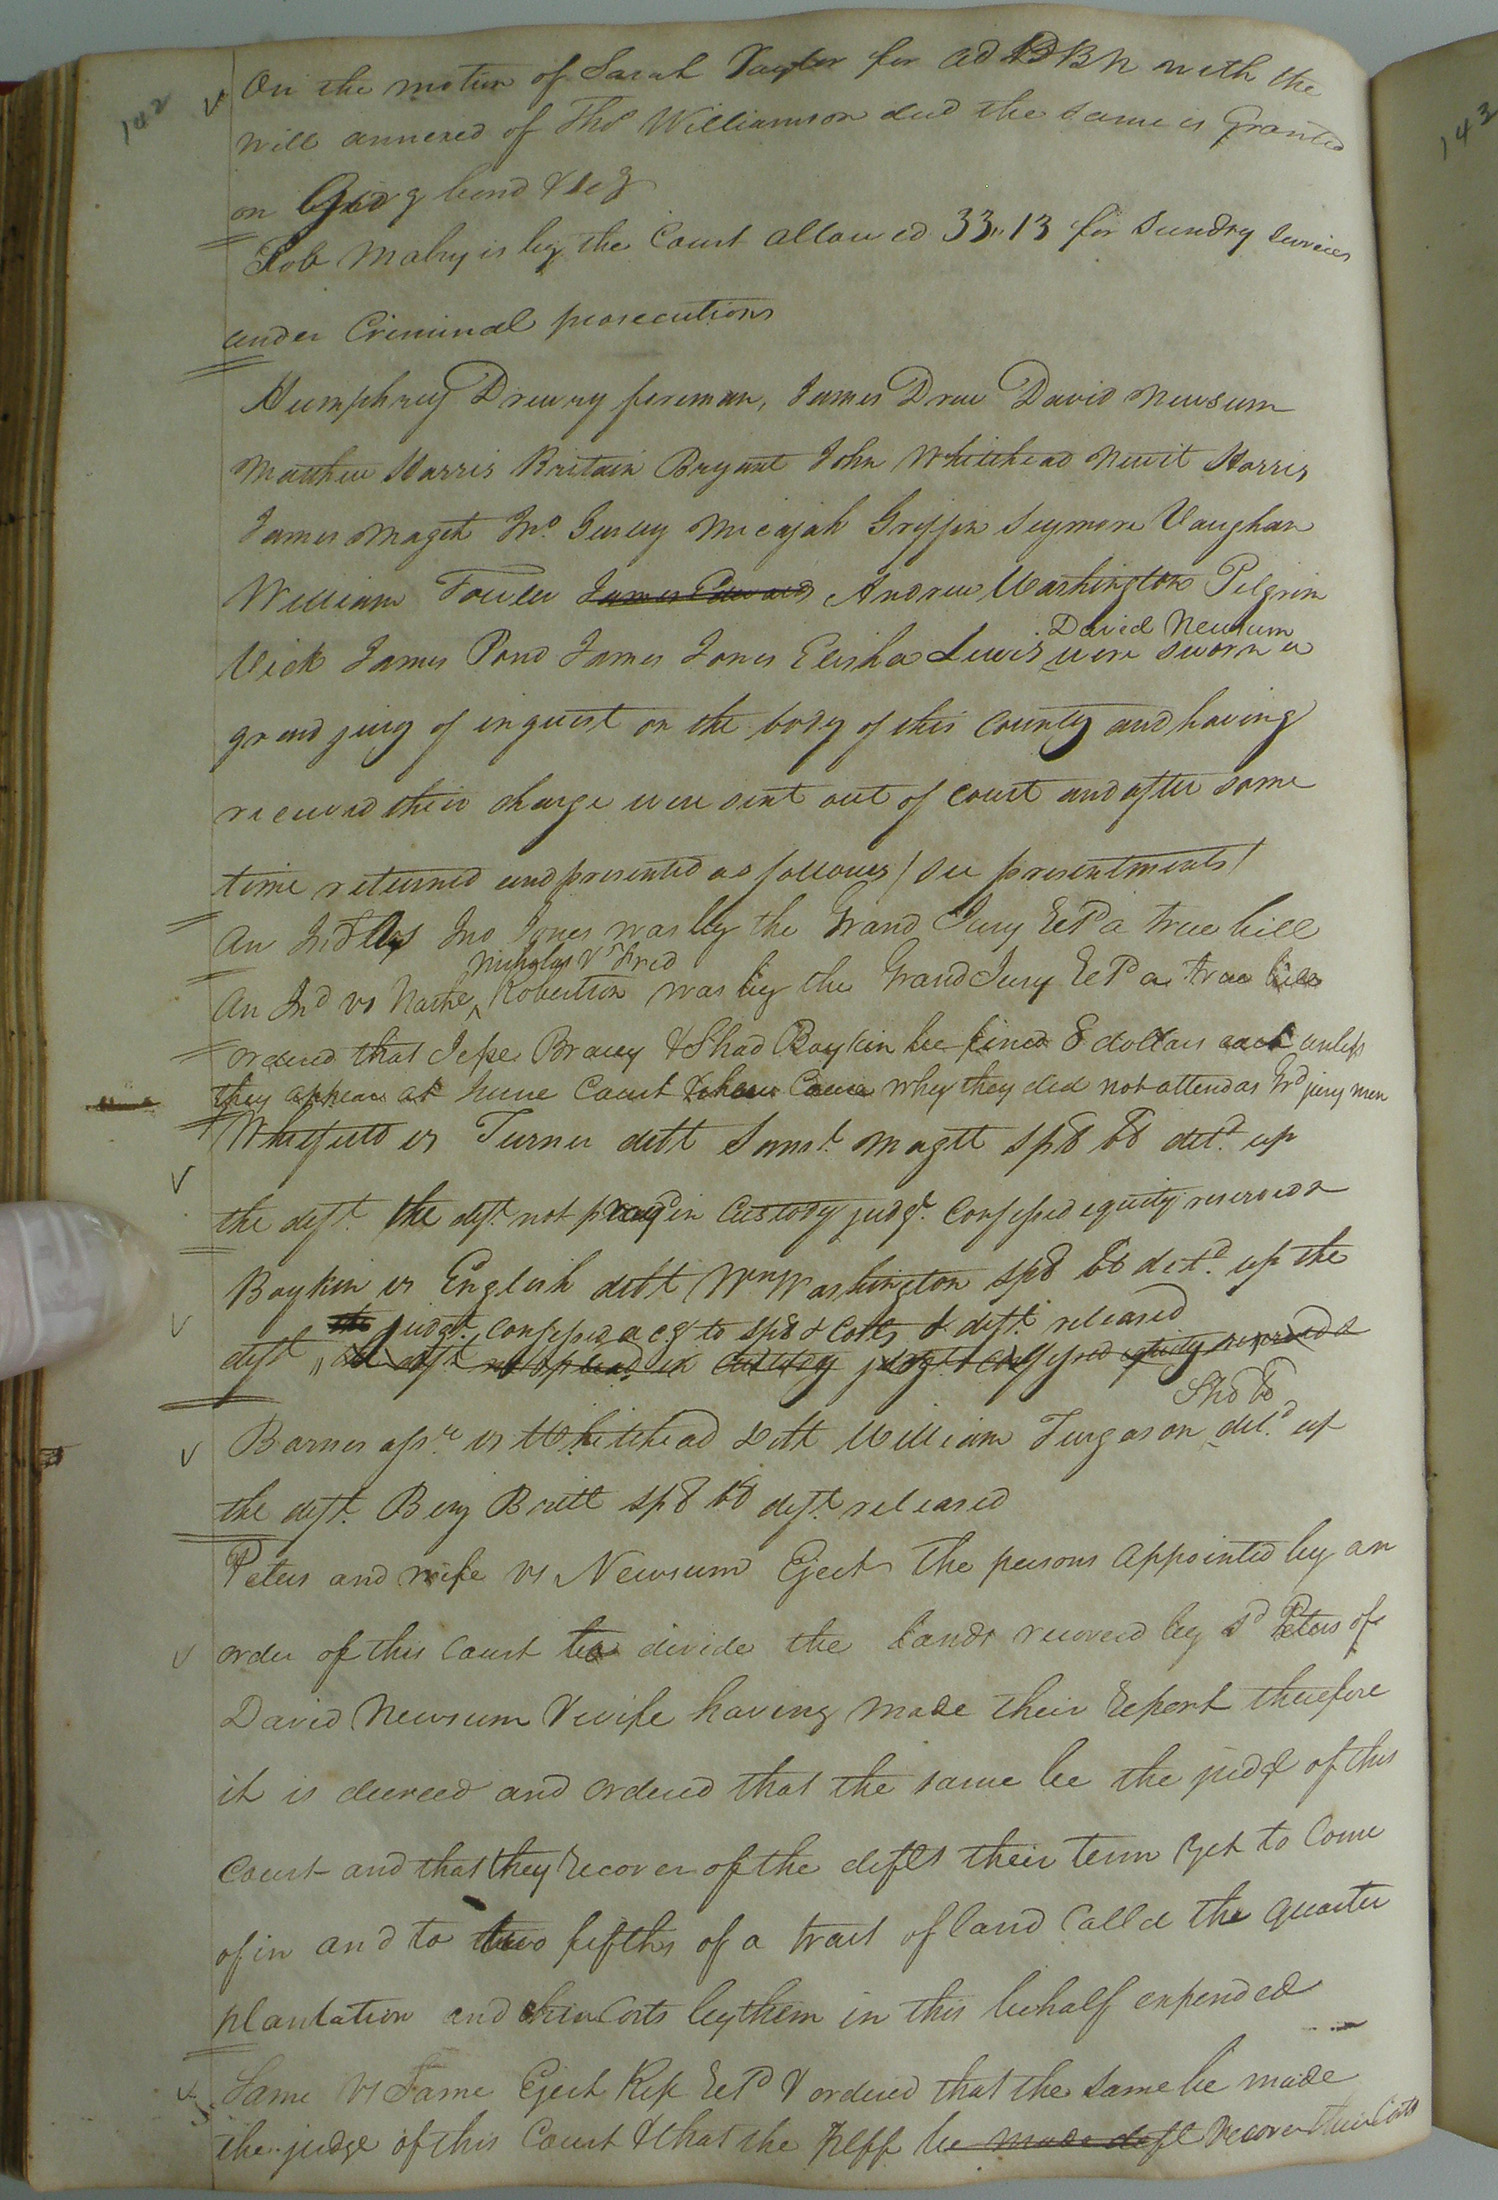 142
On the motion of Sarah Taylor for ad DBN with the
will annexed of Thos Williamson decd the same is Granted
on Givg bond & secy
Rob Mabry is by the Court allowed 33..13 for sundry services
under Criminal prosecutions
Humphrey Drewry foreman, James Drew David Newsum
Matthew Harris Britain Bryant John Whitehead Newit Harris
James Magett Jno. Gurley Micajah Griffin Seymore Vaughan
William Fowler James Edwards Andrew Washington Pilgrim
David Newsum
Vick James Pond James Jones Elisha Lewis were sworn a
grand jury of inquest on the body of this County and having
received their charge were sent out of court and after some
time returned and presented as follows / see presentments /
An Ind vs Jno Jones was by the Grand Jury Retd a true bill
Nicholas & Fred
An Ind vs Nathl Robertson was by the Grand Jury Retd a true bill
ordered that Jesse Bracey & Shad Boykin be fined 8 dollars each unless
they appear at June Court & shew Cause why they did not attend as Gd jury men
Whitfield vs Turner debt Saml. Magett sp8 b8 deld. up
the deft. the deft. not prayd in Custody judgt. Confessed equity reserved &
Boykin vs English debt Wm Washington sp8 b8 deld. up the
the judgt. confessed acg to sp8 & Costs & deft. released
deft. the deft. not prayd in custody judgt. confessed equity reserved &
Shd bd
Barnes assee vs Whitehead debt William Furgason deld. up
the deft. Benj Britt sp8 b8 deft. released
Peters and wife vs Newsum Eject the persons appointed by an
order of this Court to divide the lands recoverd by sd Peters of
David Newsum & wife having made their Report therefore
it is decreed and ordered that the same be the judgt of this
Court and that they Recover of the defts their term yet to Come
of in and to two fifths of a tract of land Calld the quarter
plantation and their Costs by them in this behalf expended
Same vs Same Eject Rep Retd & ordered that the same be made
the judge of this Court & that the plff be made deft Recover their Costs
143